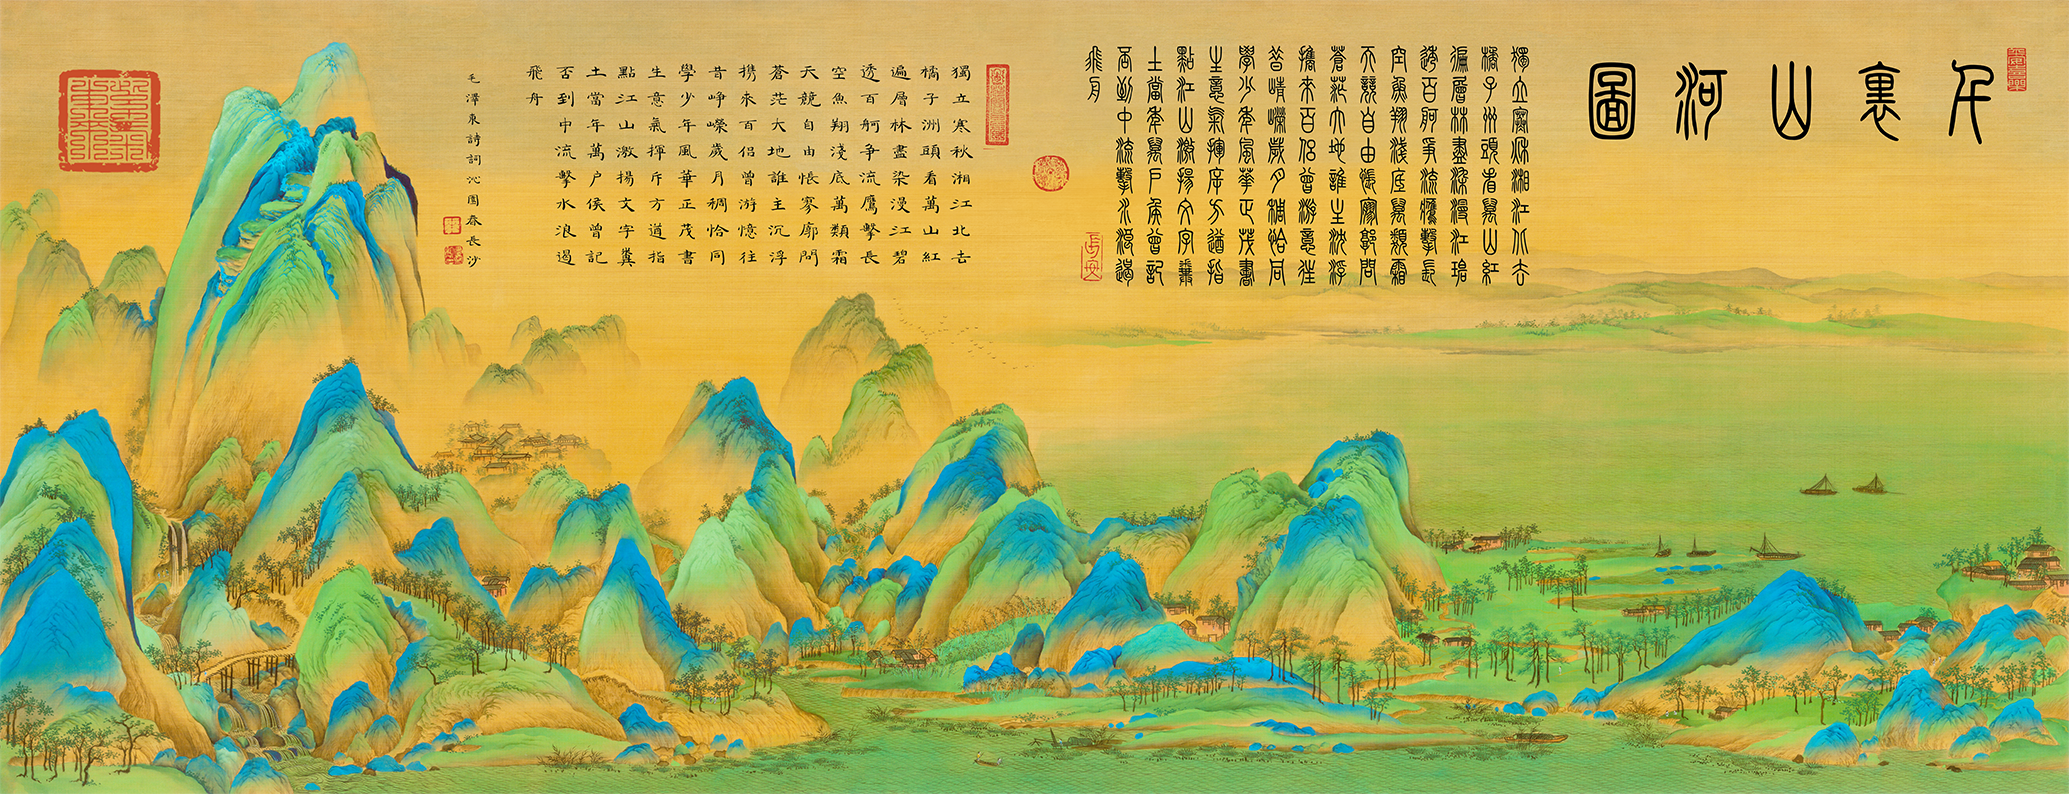 千裏山河圖
獨立寒秋湘江北去
橘子洲頭看萬山紅
遍層林盡染漫江碧
透百舸爭流鷹擊長
空魚翔淺底萬類霜
天競自由悵寥廓問
蒼茫大地誰主沈浮
攜來百侶曾游憶往
昔崢嶸歲月稠恰同
學少年風華正茂書
生意氣揮斥方遒指
點江山激揚文字糞
土當年萬戶侯曾記
否到中流擊水浪遏
飛舟
獨立寒秋湘江北去
橘子洲頭看萬山紅
遍層林盡染漫江碧
透百舸爭流鷹擊長
空魚翔淺底萬類霜
天競自由悵寥廓問
蒼茫大地誰主沉浮
携來百侶曾游憶往
昔崢嶸歲月稠恰同
學少年風華正茂書
生意氣揮斥方遒指
點江山激揚文字糞
土當年萬户侯曾記
否到中流擊水浪遏
飛舟
毛澤東詩詞沁園春長沙